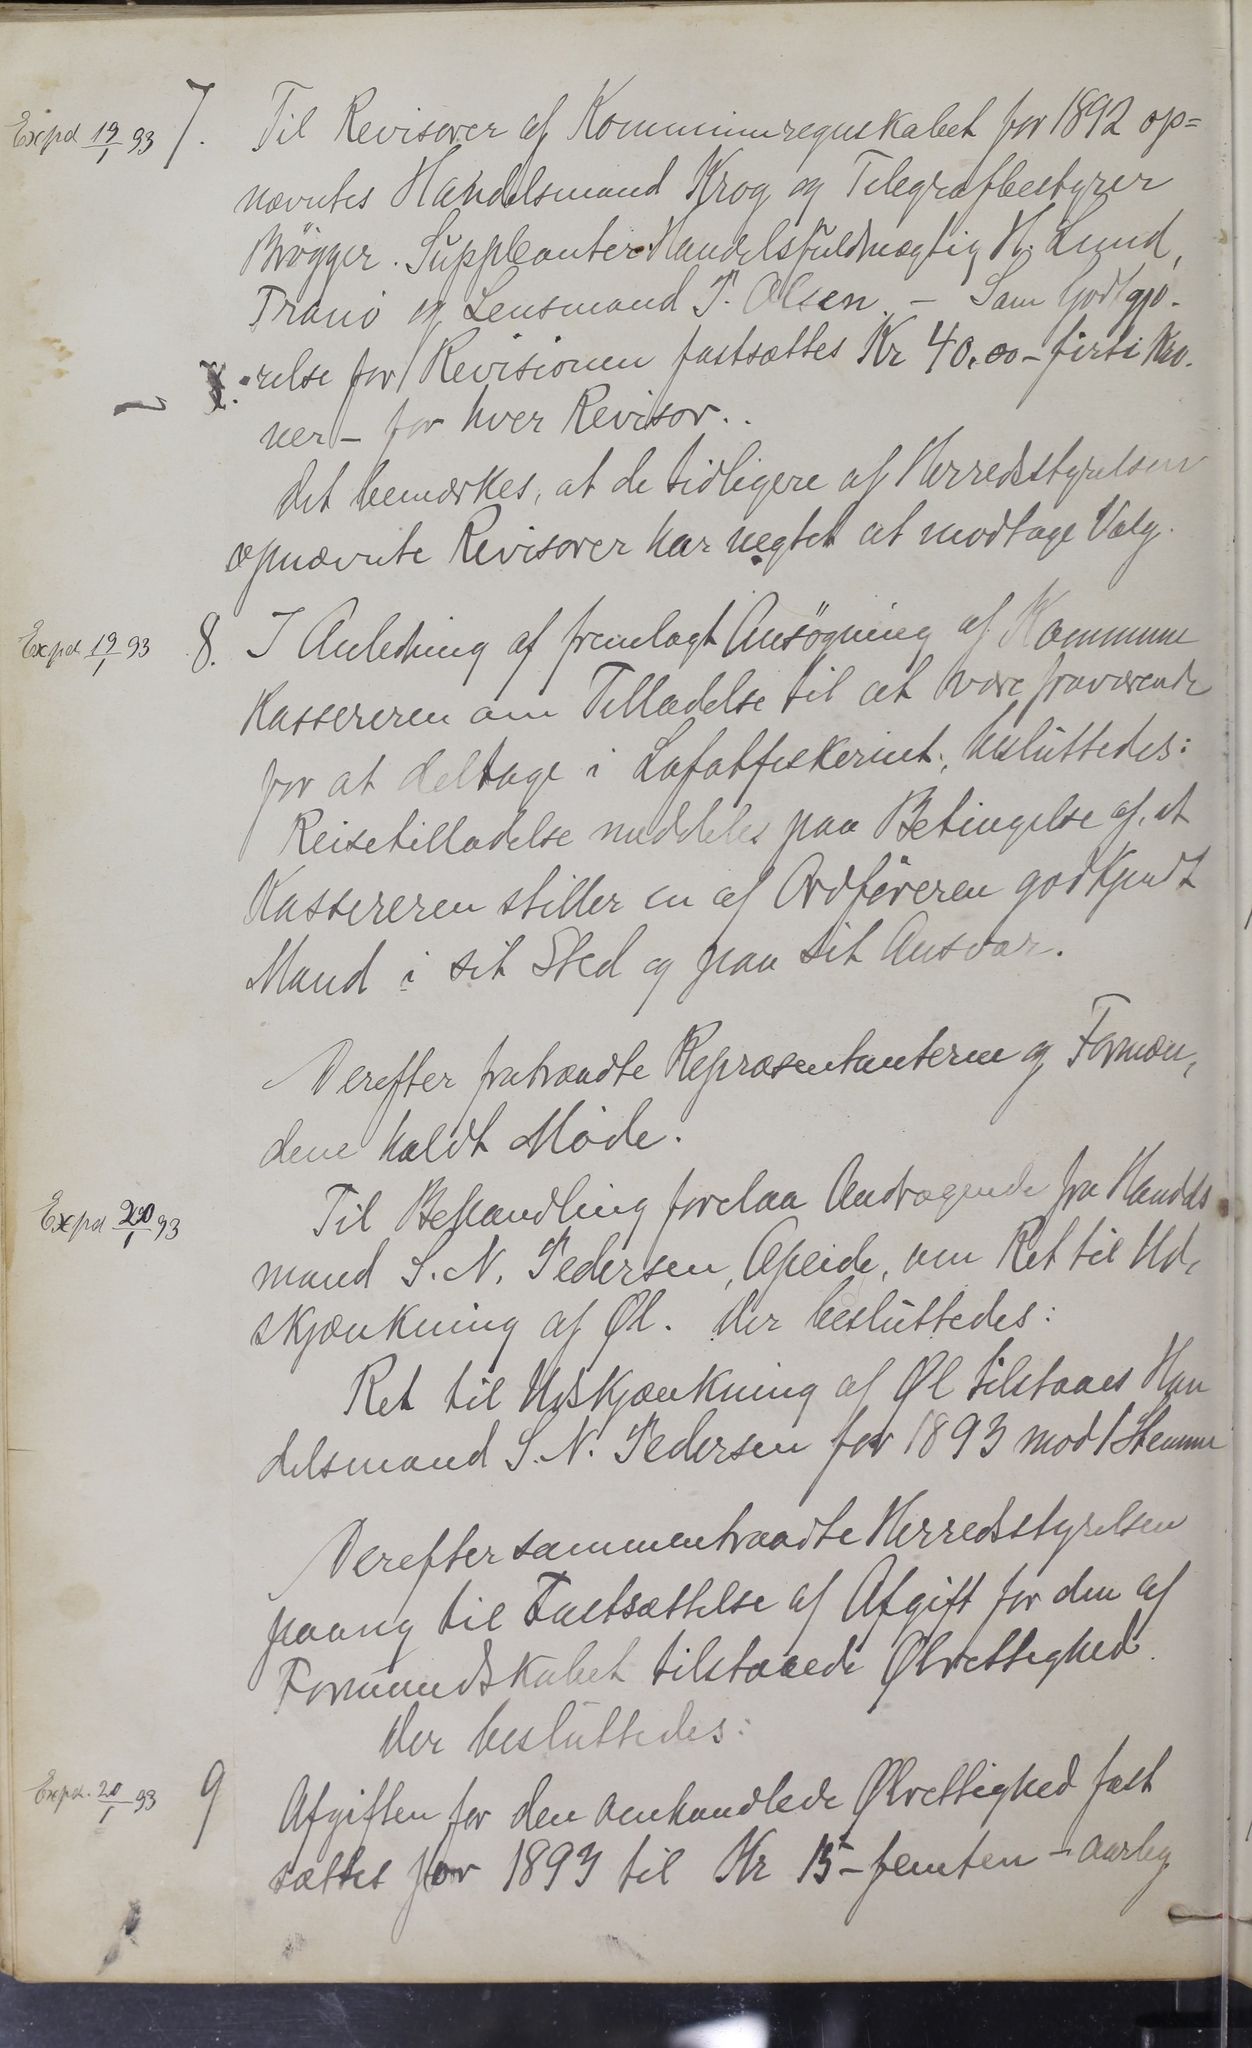 Expd 19/1 93 7. Til Revisorer af Kommuneregnskabet for 1892 op=
nævntes Handelsmand Krog og Telegrafbestyrer
Brøgger. Suppleanter Handelsfuldmægtig H. Lund,
Tranö og Lensmand P. Olsen. – Som Godtgjö-
relse for Revisionen fastsættes Kr 40.00 – firti Kro-
ner – for hver Revisor.
Det bemærkes, at de tidligere af Herredsstyrelsen
opnævnte Revisorer har negtet at modtage Valg.
Expd 19/1 93 8. I Anledning af fremlagt Ansögning af Kommune
kassereren om Tilladelse til at være fraværende
for at deltage i Lofotfiskeriet, besluttedes:
Reisetilladelse meddeles paa Betingelse af, at
Kassereren stiller en af Ordföreren godkjendt
Mand i sit Sted og paa sit Ansvar.
Derefter fratraadte Repræsentanterne og Formæn,
dene holdt Möde.
Expd 20/1 93 Til Behandling forelaa Andragende fra Handels
mand S. N. Pedersen, Opeide, om Ret til Ud,
skjænkning af Øl. Der besluttedes:
Ret til Udskjænkning af Øl tilstaaes Han
delsmand S. N. Pedersen for 1893 mod 1 Stemme
Derefter sammentraadte Herredsstyrelsen
paany til Fastsættelse af Afgift for den af
Formandskabet tilstaaede Ølrettighed.
Der besluttedes:
Expd. 20/1 93 9 Afgiften for den omhandlede Ølrettighed fast
sættes for 1893 til Kr 15 – femten – aarlig